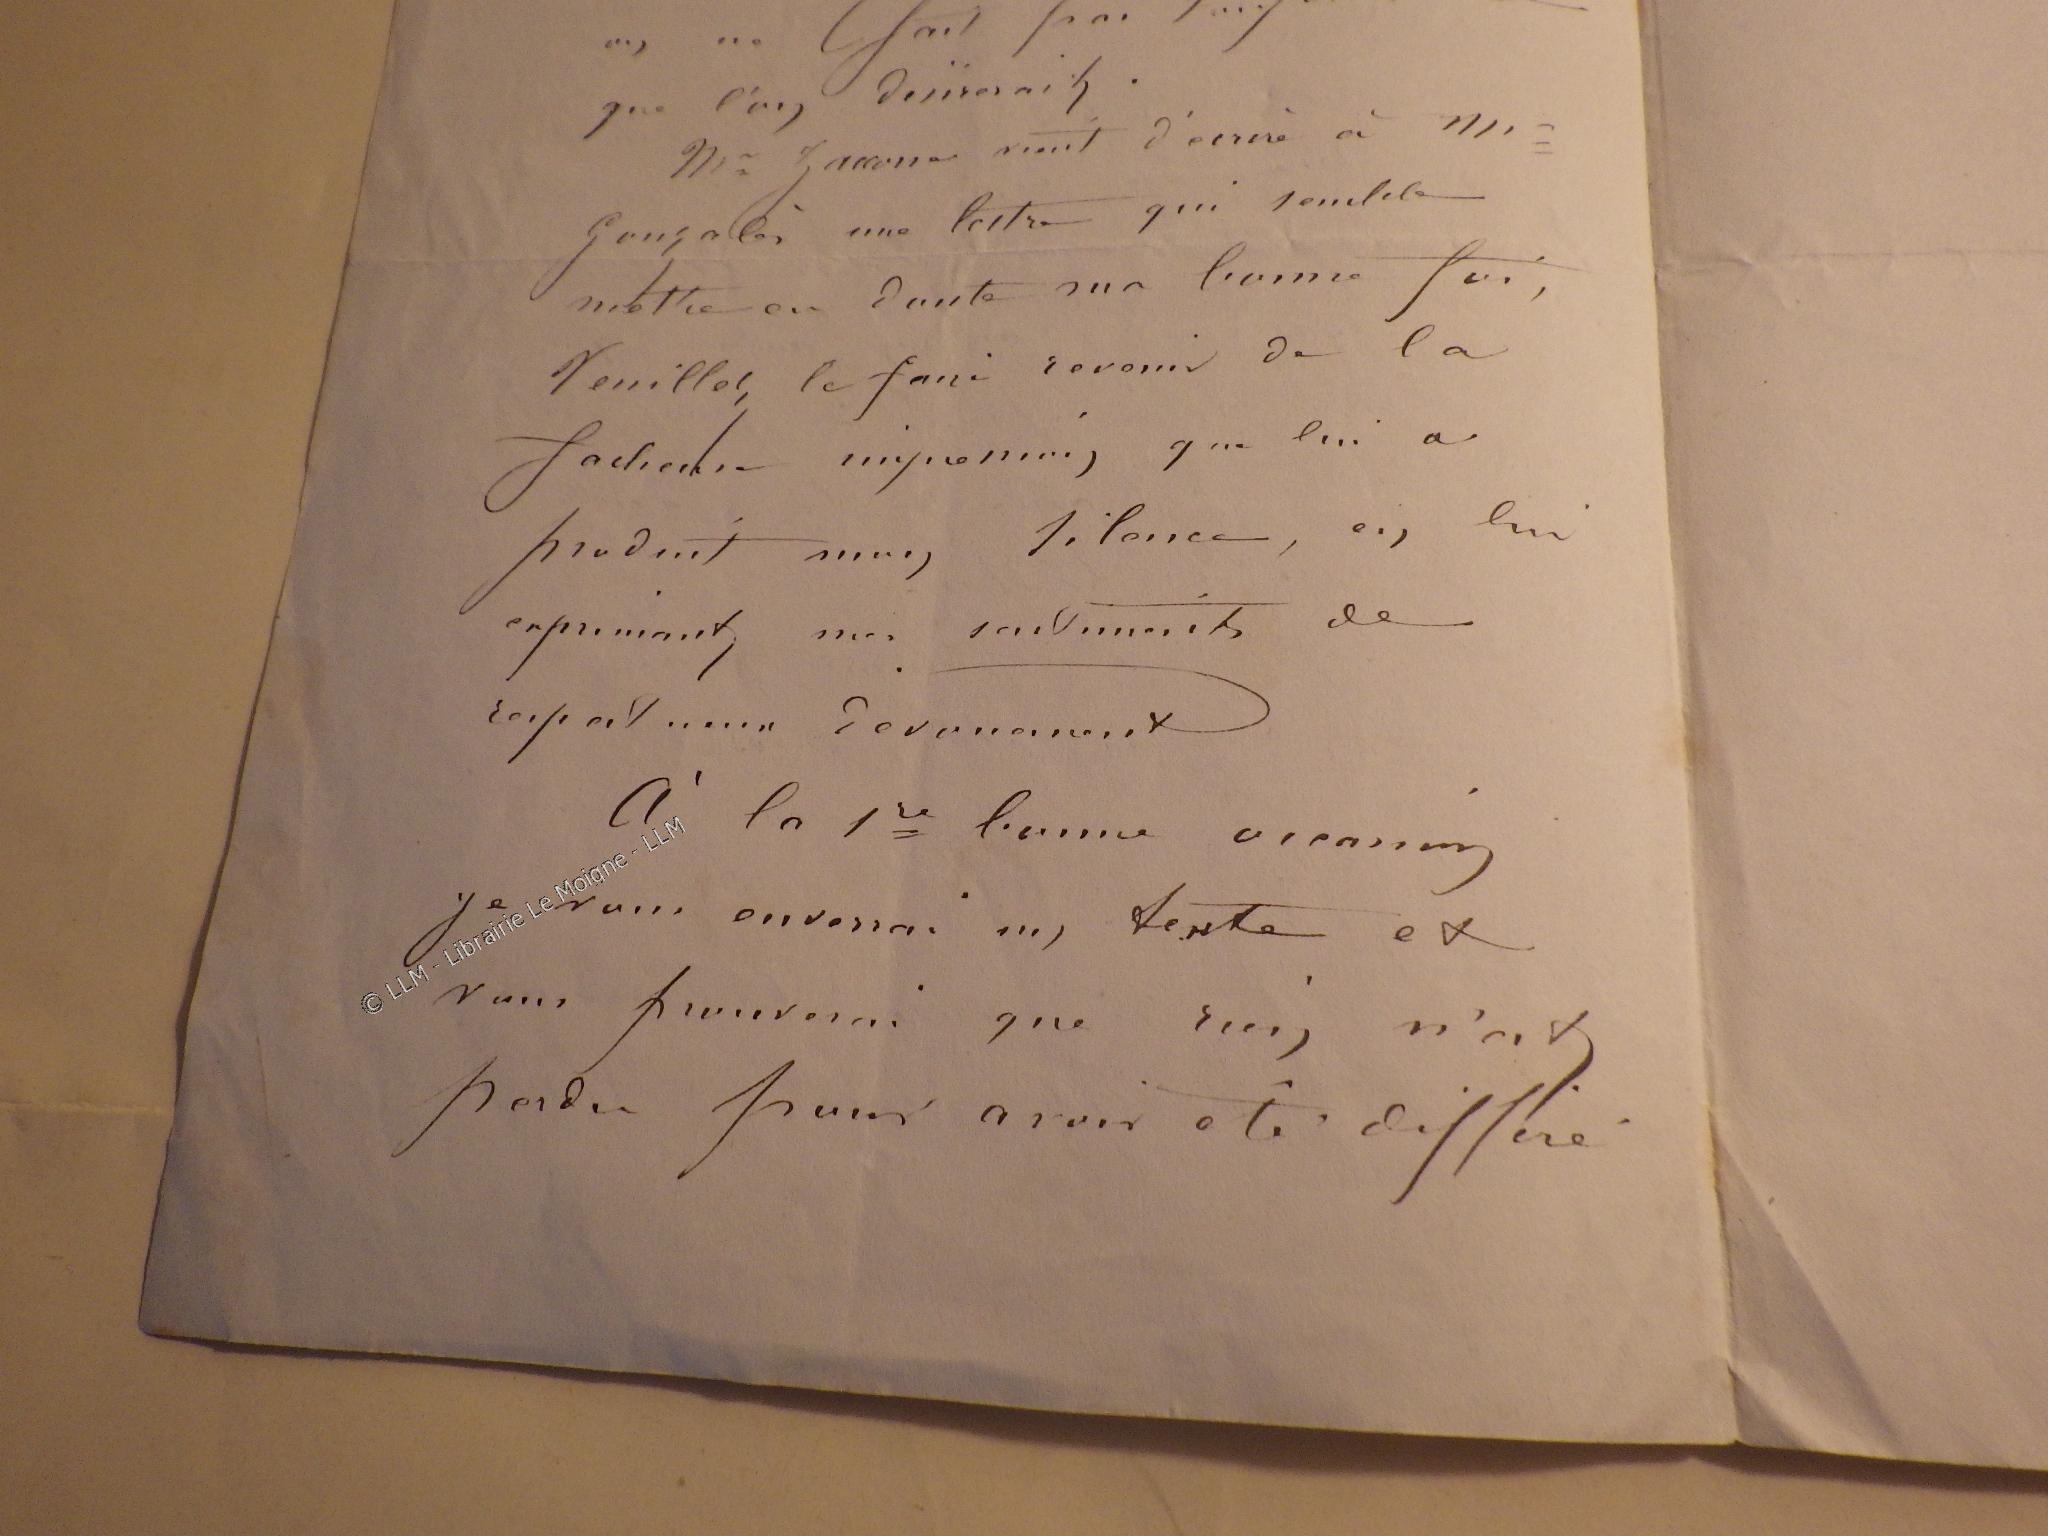 on ne fait pas
que l'on désirerait.
Mr Zaccone vient d'écrire à Mr
Gonzalès une lettre qui semble
mettre en doute ma bonne foi,
Veuillez le faire revenir de la
facheuse impression que lui a
produit mon silence, en lui
exprimant mes sentiments de
respectueux dévouement
À la 1re bonne occasion
je vous enverrai un texte et
vous prouverai que rien n'est
perdu pour avoir été différé
© LLM - Librairie Le Moigne - LLM